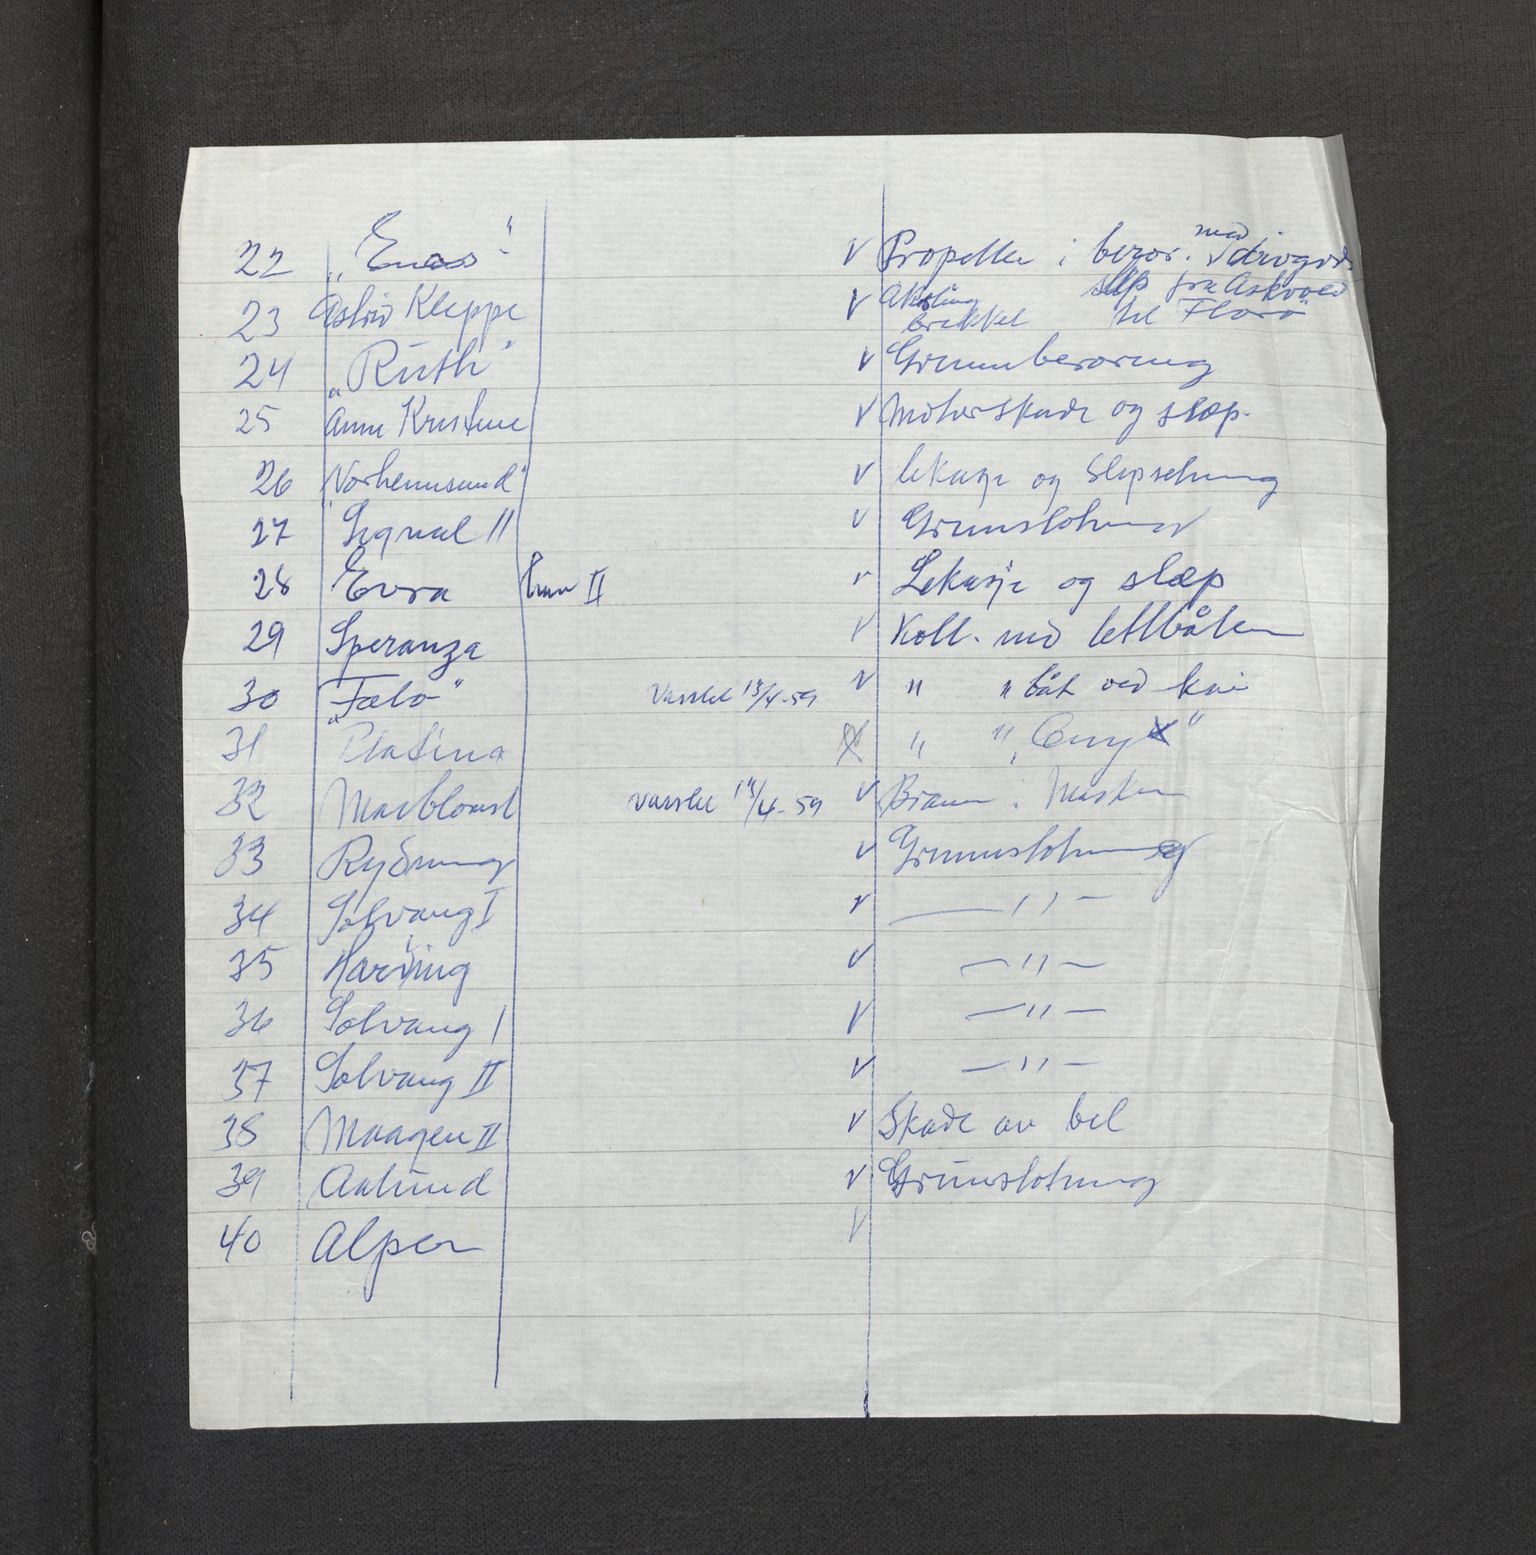 22 „Enos" v Propeller i berør. med drivgods
23 Astrid Kleppe v Aksling brekket slep fra Askvoll til Florø
24 „Ruth" v Grunnberøring
25 Anne Kristine v Motorskade og slæp.
26 Norheimsund" v lekasje og Slepsetning
27 Signal II v Grunnstøtning
28 Evra II v Lekasje og slæp
29 Speranza v Koll. med lettbåten
30 „Falo" Varslet 13/4-59 v " " båt ved kai
31 Platina " "
32 Marblomst varslet 14/4-59 v Brann i Maskin
33 Rydning v Grunnstøtning
34 Solvang I v — " —
35 Harding v — " —
36 Solvang I v — " —
37 Solvang II v — " —
38 Maagen II v Skade av bel
39 Aalund v Grunstøtning
40 Alpen v